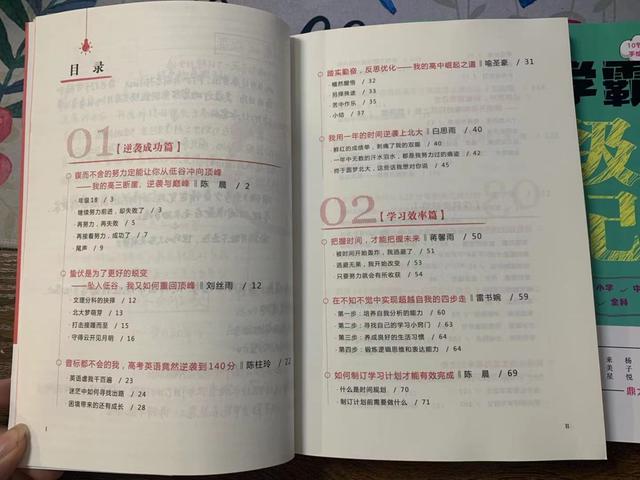 目录
01【逆袭成功篇】
锲而不舍的努力定能让你从低谷冲向顶峰
——我的高三断崖、逆袭与巅峰 陈晨 / 2
·年级18 / 3
·继续努力前进，却失败了 / 3
·再努力，再失败 / 5
·再接着努力，成功了 / 7
·尾声 / 9
蛰伏是为了更好的蜕变
——坠入低谷，我又如何重回顶峰 刘丝雨 / 12
·文理分科的抉择 / 12
·北大梦萌芽 / 13
·打击接踵而至 / 15
·守得云开见月明 / 16
音标都不会的我，高考英语竟然逆袭到140分 陈柱玲 / 22
·英语虐我千百遍 / 23
·迷茫中如何寻找出路 / 24
·困境带来的还有成长 / 28
I
踏实勤奋，反思优化——我的高中崛起之道 喻圣豪 / 31
·幡然醒悟 / 32
·另择挟途 / 33
·苦中作乐 / 35
·小结 / 37
我用一年的时间逆袭上北大 白思雨 / 40
·鲜红的成绩单，刺痛了我的双眼 / 40
·一年中无数的汗水泪水，都是我努力过的痕迹 / 42
·终于圆梦北大，这些话我想对你说 / 45
02【学习效率篇】
把握时间，才能把握未来 蒋馨雨 / 50
·被时间开始轰炸，我逃避了 / 51
·逃避无果，我开始改变 / 53
·只要努力就会有所收获 / 54
在不知不觉中实现超越自我的四步走 雷书婉 / 59
·第一步：培养自我分析的能力 / 60
·第二步：寻找自己的学习小窍门 / 63
·第三步：养成良好的生活习惯 / 64
·第四步：锻炼逻辑思维和表达能力 / 64
如何制订学习计划才能有效完成 陈晨 / 69
·什么是时间规划 / 70
·制订计划前需要做什么 / 71
II
学霸
级
记
小学
全科